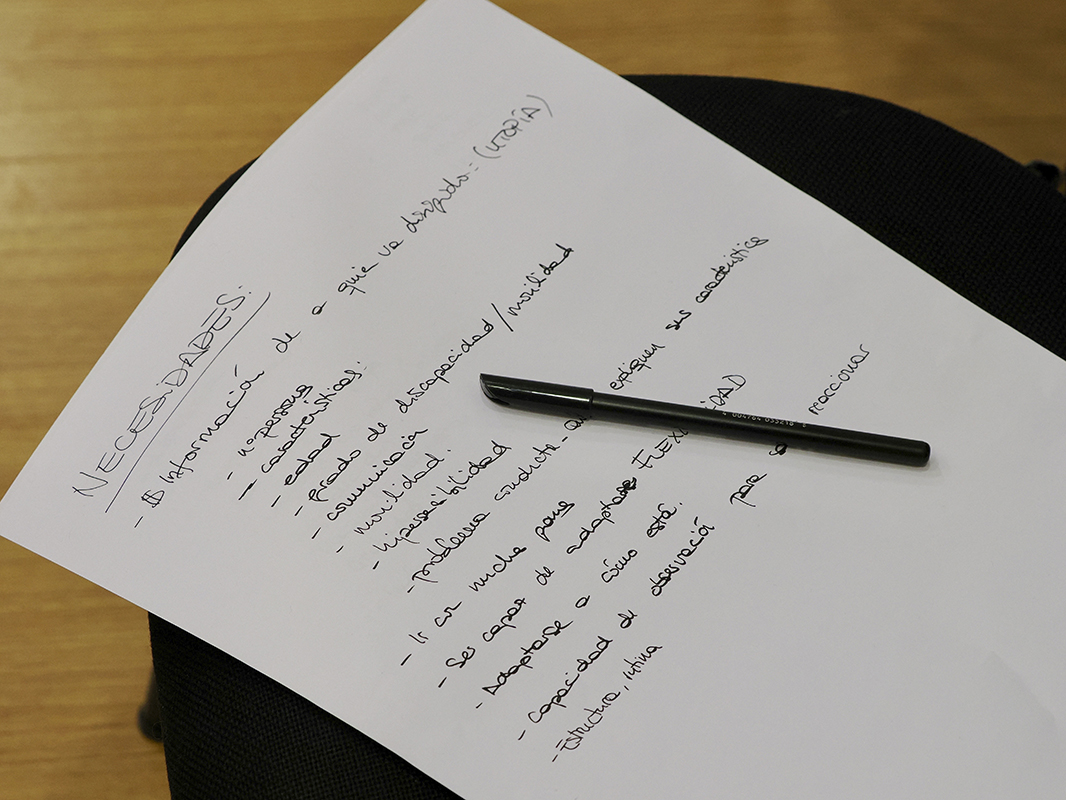 NECESIDADES:
- Información de a quie va dirigido.: (UTOPÍA)
- nº personas
- características:
- edad
- grado de discapacidad/movilidad
- comunicación
- movilidad.
- hipersensibilidad
- problema conducta - expliquen sus características
- Ir con mucha
- Ser capaz de adaptarse
- Adaptarse a cómo está.
- Capacidad de observación para reaccionar
- Estructura, rutina
4 004764 035218